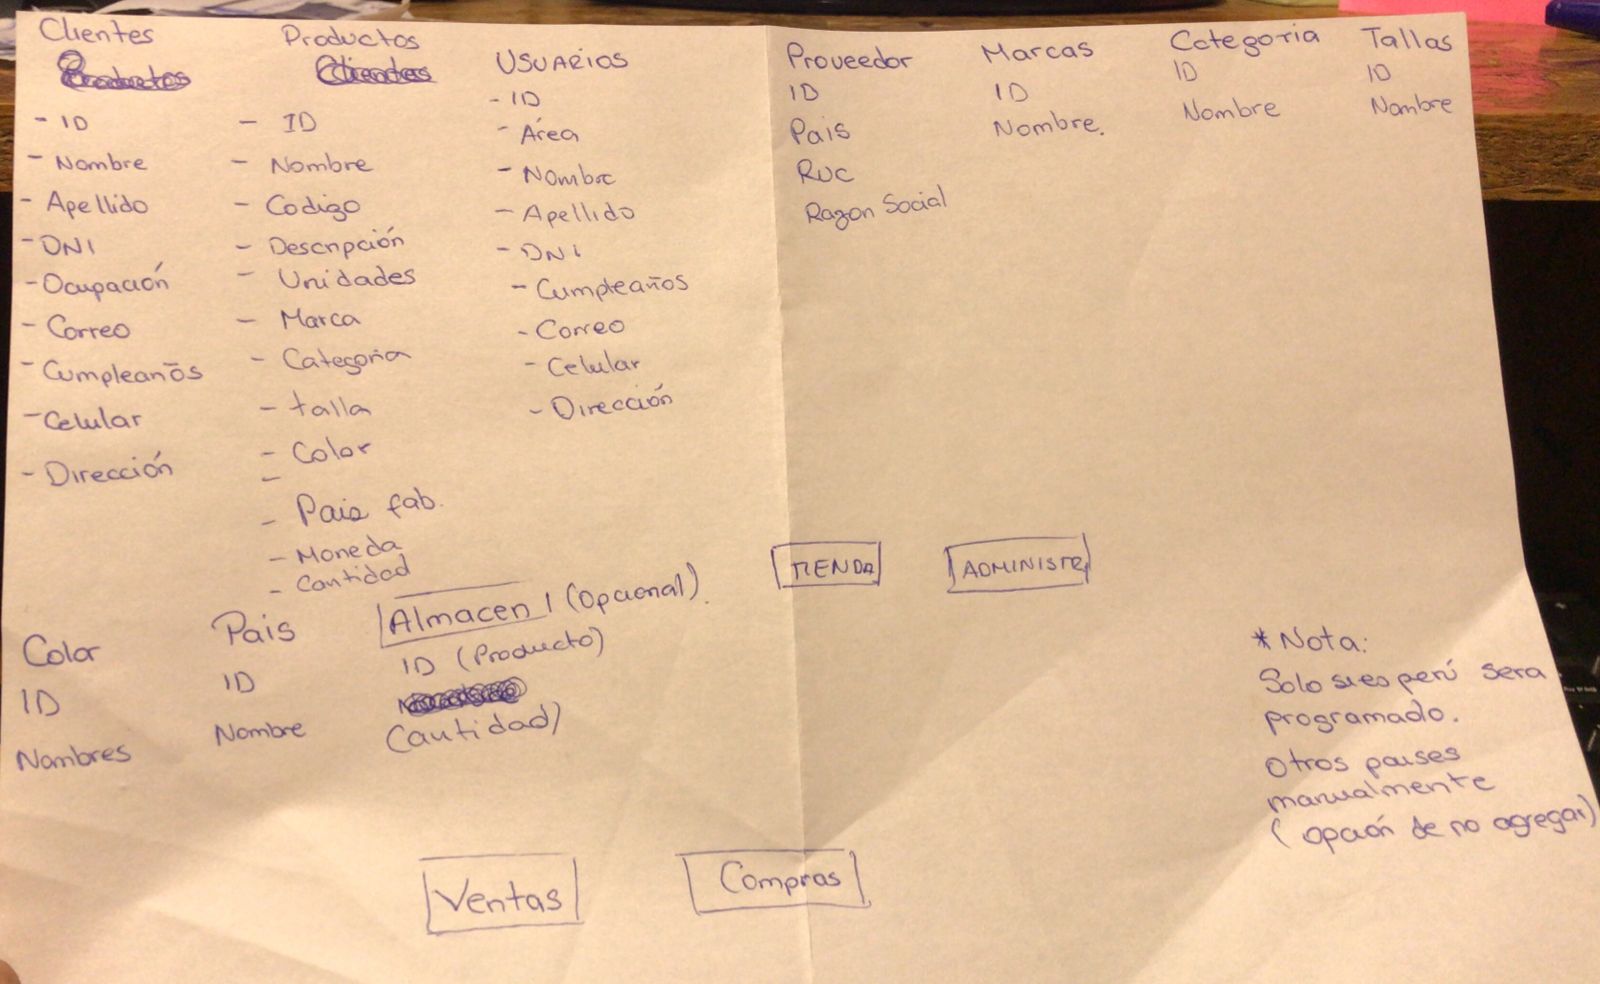 Clientes
- ID
- Nombre
- Apellido
- DNI
- Ocupación
- Correo
- Cumpleaños
- Celular
- Dirección
Productos
Clientes
- ID
- Nombre
- Codigo
- Descripción
- Unidades
- Marca
- Categoria
- talla
- Color
-
- Pais fab.
- Moneda
- Cantidad
USUARIOS
- ID
- Área
- Nombre
- Apellido
- DNI
- Cumpleaños
- Correo
- Celular
- Dirección
Proveedor
ID
Pais
RUC
Razon Social
Marcas
ID
Nombre.
Categoria
ID
Nombre
Tallas
ID
Nombre
TIENDA
ADMINISTR
Color
ID
Nombres
Pais
ID
Nombre
Almacen 1 (Opcional).
ID (Producto)
Cantidad)
* Nota:
Solo si es perú sera
programado.
Otros paises
manualmente
(opción de no agregar)
Ventas
Compras